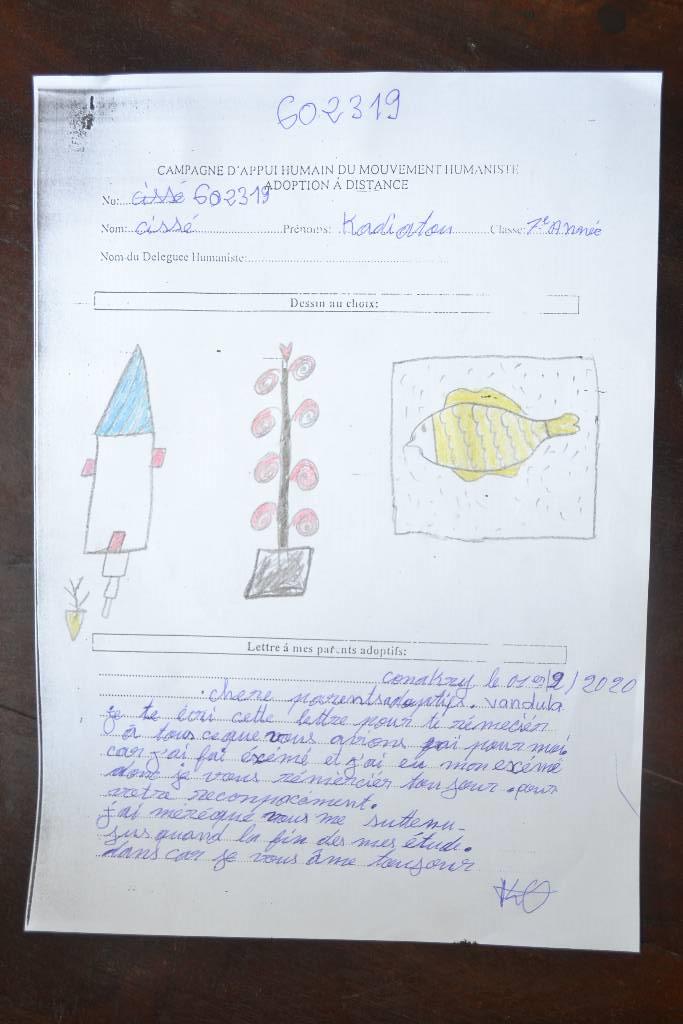 602319
CAMPAGNE D'APPUI HUMAIN DU MOUVEMENT HUMANISTE
ADOPTION À DISTANCE
No: cissé 602319
Nom: cissé Prénoms: Kadiatou Classe: 7e Année
Nom du Deleguee Humaniste:
Dessin au choix:
Lettre á mes parents adoptifs:
conakry le 2/2020
chere parents adoptifs. vandula
je te écri cette lettre pour ti rémeciér
a tous ceque vous avions pour moi
car j'ai fai éxémé et j'ai eu mon exémé
donc je vous rémerciér toujour. pour
votre
j'ai vous me suttenu
jusquand la fin des mes étude.
dans car je vous âme toujour